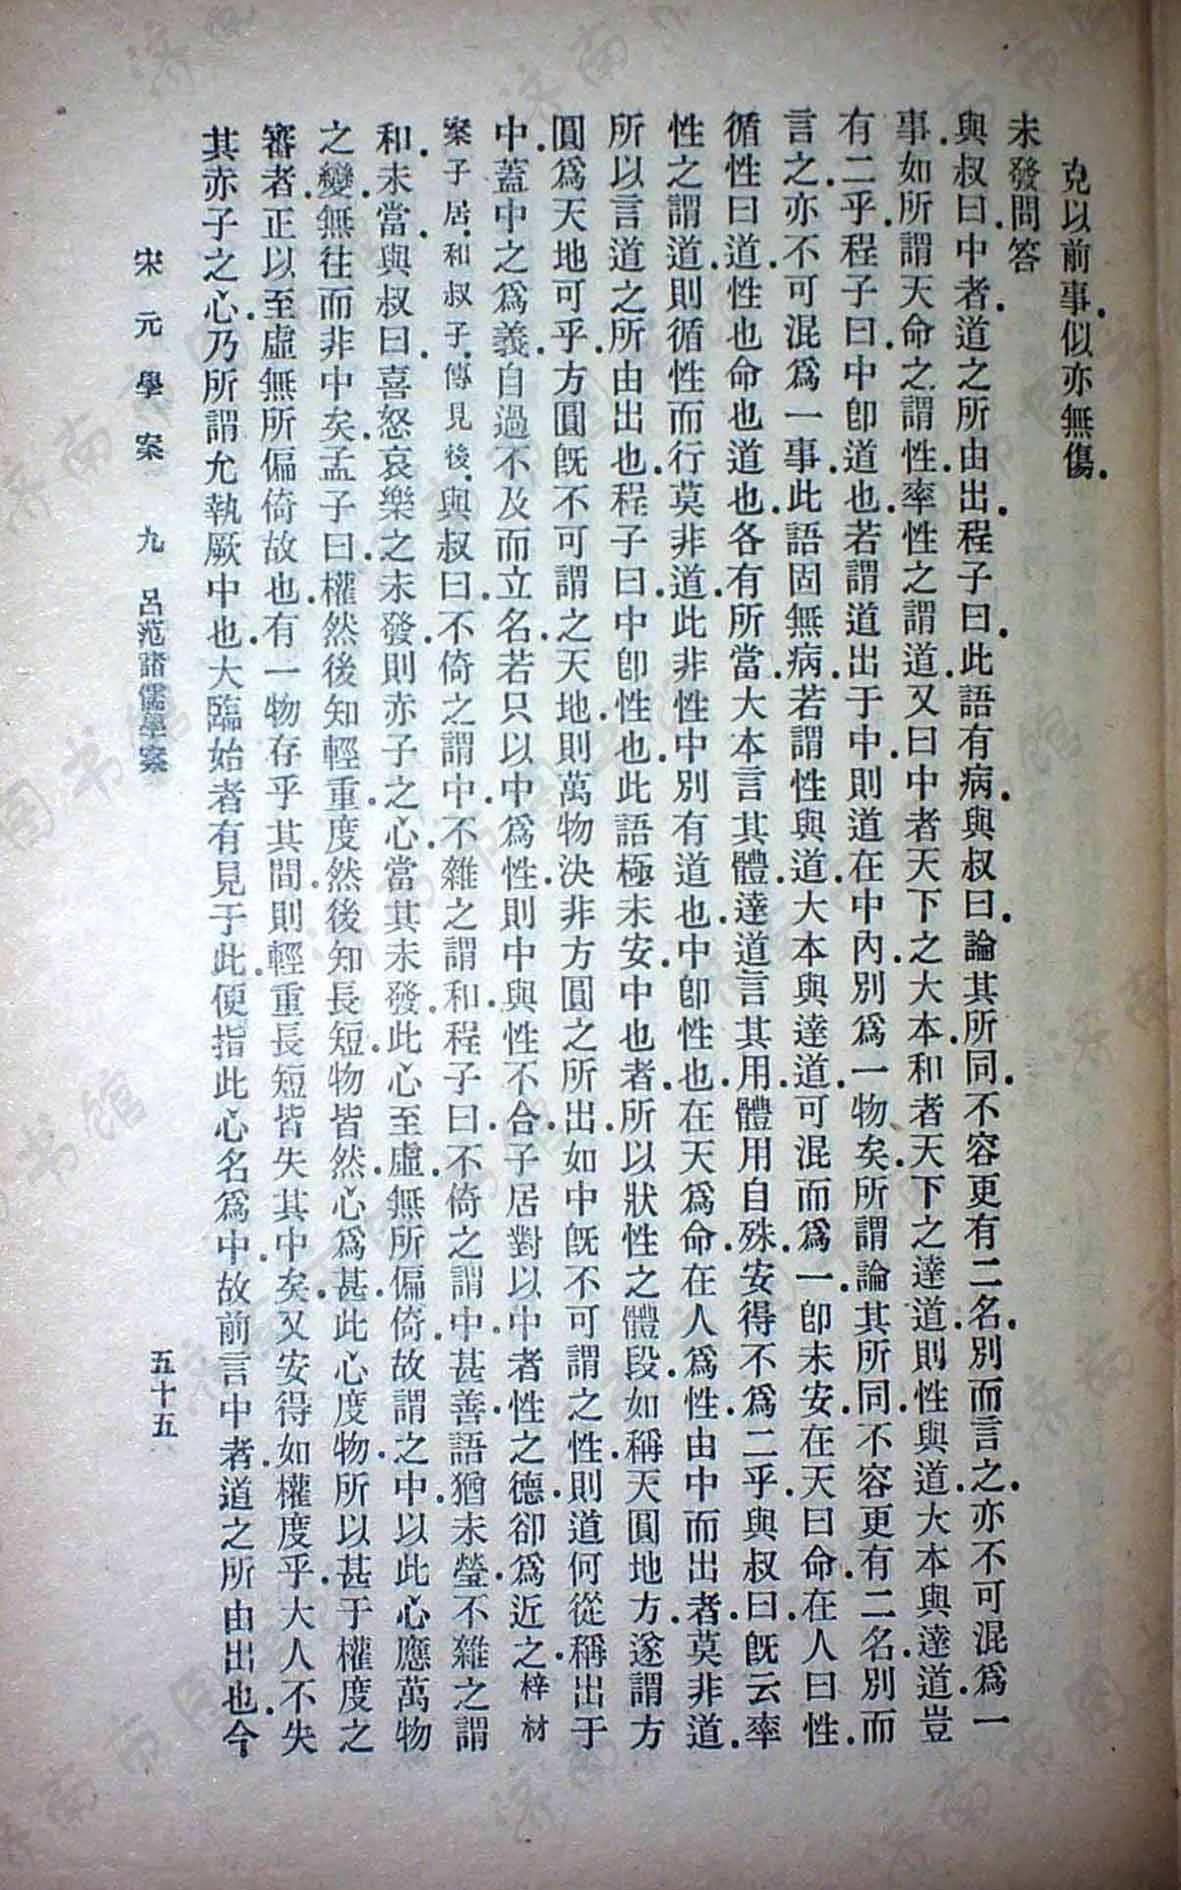 克以前事似亦無傷.
未發問答
與叔曰.中者.道之所由出.程子曰.此語有病.與叔曰.論其所同.不容更有二名.別而言之.亦不可混爲一
事.如所謂天命之謂性.率性之謂道.又曰.中者天下之大本.和者天下之達道.則性與道.大本與達道.豈
有二乎.程子曰.中卽道也.若謂道出于中.則道在中內.別爲一物矣.所謂論其所同.不容更有二名.別而
言之.亦不可混爲一事.此語固無病.若謂性與道.大本與達道.可混而爲一.卽未安.在天曰命.在人曰性.
循性曰道.性也.命也.道也.各有所當.大本言其體.達道言其用.體用自殊.安得不爲二乎.與叔曰.旣云率
性之謂道.則循性而行.莫非道.此非性中別有道也.中卽性也.在天爲命.在人爲性.由中而出者.莫非道.
所以言道之所由出也.程子曰.中卽性也.此語極未安.中也者.所以狀性之體段.如稱天圓地方.遂謂方
圓爲天地可乎.方圓旣不可謂之天地.則萬物決非方圓之所出.如中旣不可謂之性.則道何從稱出于
中.蓋中之爲義.自過不及而立名.若只以中爲性.則中與性不合.子居對以中者性之德.卻爲近之.梓材
案子居.和叔子.傳見後.與叔曰.不倚之謂中.不雜之謂和.程子曰.不倚之謂中.甚善.語猶未瑩.不雜之謂
和.未當.與叔曰.喜怒哀樂之未發.則赤子之心.當其未發.此心至虛.無所偏倚.故謂之中.以此心應萬物
之變.無往而非中矣.孟子曰.權然後知輕重.度然後知長短.物皆然.心爲甚.此心度物.所以甚于權度之
審者.正以至虛無所偏倚故也.有一物存乎其間.則輕重長短皆失其中矣.又安得如權度乎.大人不失
其赤子之心.乃所謂允執厥中也.大臨始者有見于此.便指此心名爲中.故前言中者道之所由出也.今
宋元學案 九 呂范諸儒學案 五十五